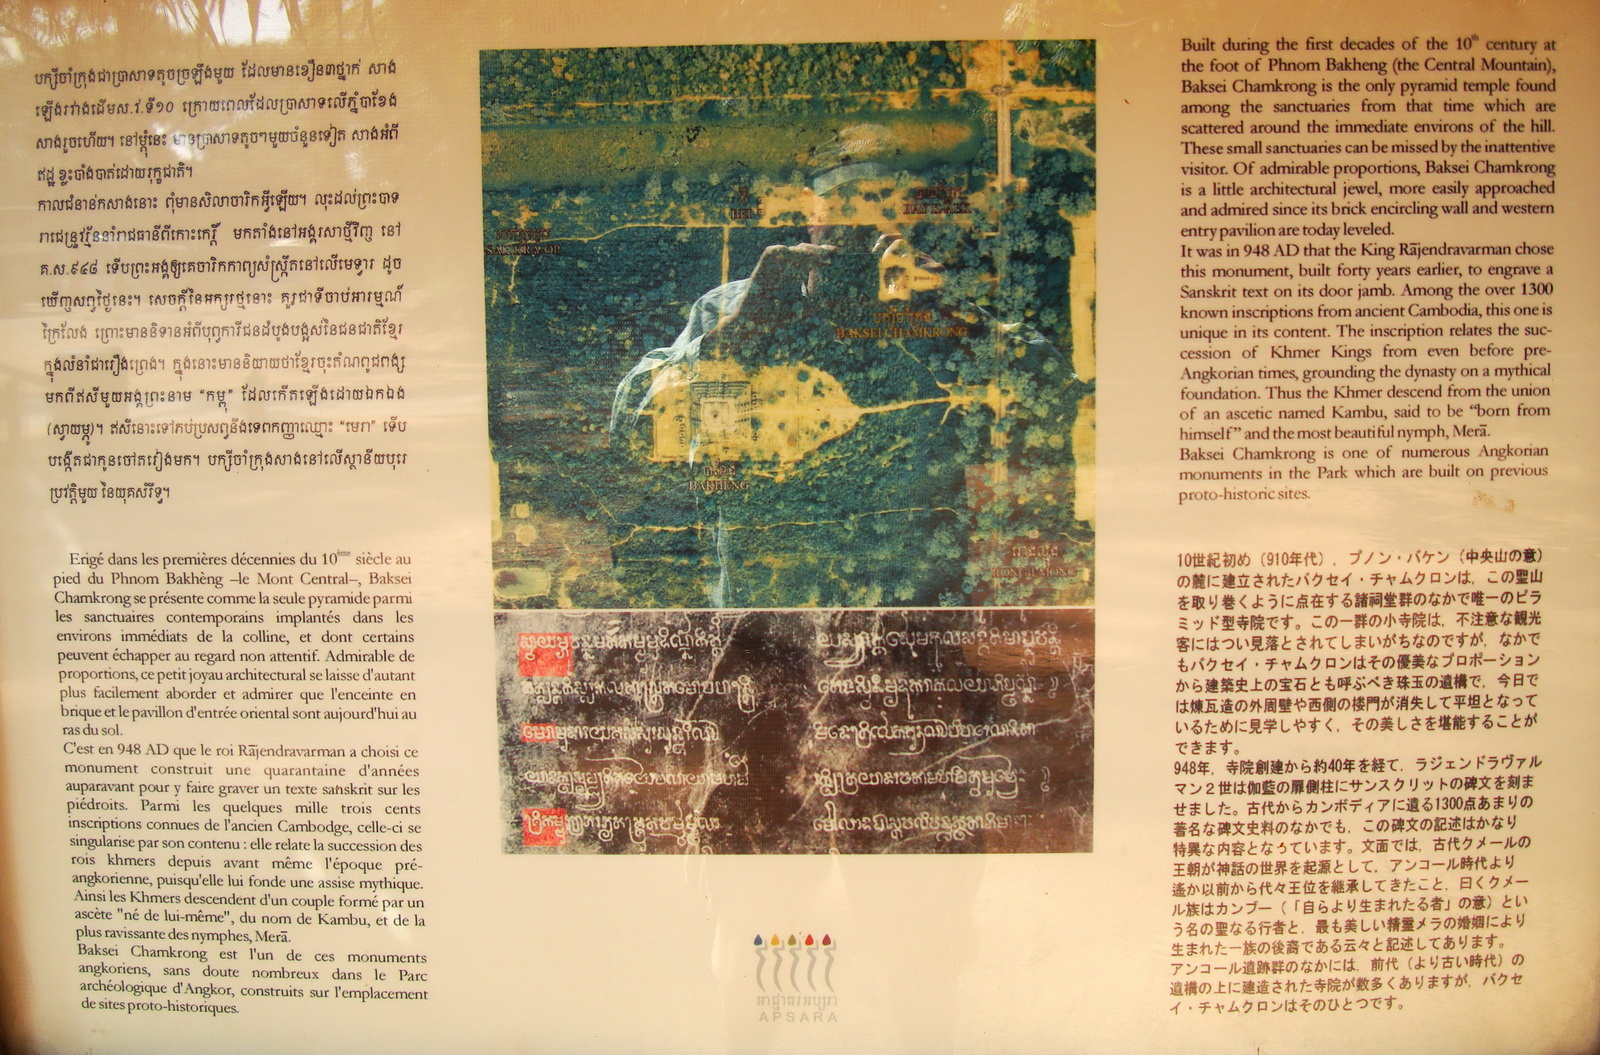 បក្សីចាំក្រុងជាប្រាសាទតូចច្រឡឹងមួយ ដែលមានខឿន៣ថ្នាក់ សាង
ឡើងរវាងដើមស.វ.ទី១០ ក្រោយពេលដែលប្រាសាទលើភ្នំបាខែង
សាងរួចហើយ។ នៅម្តុំនេះ មានប្រាសាទតូចៗមួយចំនួនទៀត សាងអំពី
ឥដ្ឋ ខ្លះបាំងបាត់ដោយរុក្ខជាតិ។
កាលជំនាន់កសាងនោះ ពុំមានសិលាចារិកអ្វីឡើយ។ លុះដល់ព្រះបាទ
រាជេន្ទ្រវរ្ម័ននាំរាជធានីពីកោះកេរ្តិ៍ មកតាំងនៅអង្គរសាថ្មីវិញ នៅ
គ.ស.៩៤៨ ទើបព្រះអង្គឲ្យគេចារិកកាព្យសំស្ក្រឹតនៅលើមេទ្វារ ដូច
ឃើញសព្វថ្ងៃនេះ។ សេចក្តីនៃអក្សរថ្មនោះ គួរជាទីចាប់អារម្មណ៍
ក្រៃលែង ព្រោះមាននិទានអំពីបុព្វការីជនដំបូងបង្អស់នៃជនជាតិខ្មែរ
ក្នុងលំនាំជារឿងព្រេង។ ក្នុងនោះមាននិយាយថាខ្មែរចុះតំណពូជពង្ស
មកពីឥសីមួយអង្គព្រះនាម “កម្ពុ” ដែលកើតឡើងដោយឯកឯង
(ស្វាយម្ភូ)។ ឥសីនោះទៅភប់ប្រសព្វនឹងទេពកញ្ញាឈ្មោះ “មេរា” ទើប
បង្កើតជាកូនចៅតរៀងមក។ បក្សីចាំក្រុងសាងនៅលើស្ថានីយបុរេ
ប្រវត្តិមួយ នៃយុគសំរឹទ្ធ។
Erigé dans les premières décennies du 10ème siècle au
pied du Phnom Bakhèng –le Mont Central–, Baksei
Chamkrong se présente comme la seule pyramide parmi
les sanctuaires contemporains implantés dans les
environs immédiats de la colline, et dont certains
peuvent échapper au regard non attentif. Admirable de
proportions, ce petit joyau architectural se laisse d'autant
plus facilement aborder et admirer que l'enceinte en
brique et le pavillon d'entrée oriental sont aujourd'hui au
ras du sol.
C'est en 948 AD que le roi Rājendravarman a choisi ce
monument construit une quarantaine d'années
auparavant pour y faire graver un texte sanskrit sur les
piédroits. Parmi les quelques mille trois cents
inscriptions connues de l'ancien Cambodge, celle-ci se
singularise par son contenu : elle relate la succession des
rois khmers depuis avant même l'époque pré-
angkorienne, puisqu'elle lui fonde une assise mythique.
Ainsi les Khmers descendent d'un couple formé par un
ascète "né de lui-même", du nom de Kambu, et de la
plus ravissante des nymphes, Merā.
Baksei Chamkrong est l'un de ces monuments
angkoriens, sans doute nombreux dans le Parc
archéologique d'Angkor, construits sur l'emplacement
de sites proto-historiques.
បក្សីចាំក្រុង
BAKSEI CHAMKRONG
បាខែង
BAKHENG
APSARA
Built during the first decades of the 10th century at
the foot of Phnom Bakheng (the Central Mountain),
Baksei Chamkrong is the only pyramid temple found
among the sanctuaries from that time which are
scattered around the immediate environs of the hill.
These small sanctuaries can be missed by the inattentive
visitor. Of admirable proportions, Baksei Chamkrong
is a little architectural jewel, more easily approached
and admired since its brick encircling wall and western
entry pavilion are today leveled.
It was in 948 AD that the King Rājendravarman chose
this monument, built forty years earlier, to engrave a
Sanskrit text on its door jamb. Among the over 1300
known inscriptions from ancient Cambodia, this one is
unique in its content. The inscription relates the suc-
cession of Khmer Kings from even before pre-
Angkorian times, grounding the dynasty on a mythical
foundation. Thus the Khmer descend from the union
of an ascetic named Kambu, said to be “born from
himself” and the most beautiful nymph, Merā.
Baksei Chamkrong is one of numerous Angkorian
monuments in the Park which are built on previous
proto-historic sites.
10世紀初め（910年代）、プノン・バケン（中央山の意）
の麓に建立されたバクセイ・チャムクロンは、この聖山
を取り巻くように点在する諸祠堂群のなかで唯一のピラ
ミッド型寺院です。この一群の小寺院は、不注意な観光
客にはつい見落とされてしまいがちなのですが、なかで
もバクセイ・チャムクロンはその優美なプロポーション
から建築史上の宝石とも呼ぶべき珠玉の遺構で、今日で
は煉瓦造の外周壁や西側の楼門が消失して平坦となって
いるために見学しやすく、その美しさを堪能することが
できます。
948年、寺院創建から約40年を経て、ラジェンドラヴァル
マン２世は伽藍の扉側柱にサンスクリットの碑文を刻ま
せました。古代からカンボディアに遺る1300点あまりの
著名な碑文史料のなかでも、この碑文の記述はかなり
特異な内容となっています。文面では、古代クメールの
王朝が神話の世界を起源として、アンコール時代より
遙か以前から代々王位を継承してきたこと、曰くクメー
ル族はカンブー（「自らより生まれたる者」の意）とい
う名の聖なる行者と、最も美しい精霊メラの婚姻により
生まれた一族の後裔である云々と記述してあります。
アンコール遺跡群のなかには、前代（より古い時代）の
遺構の上に建造された寺院が数多くありますが、バクセ
イ・チャムクロンはそのひとつです。